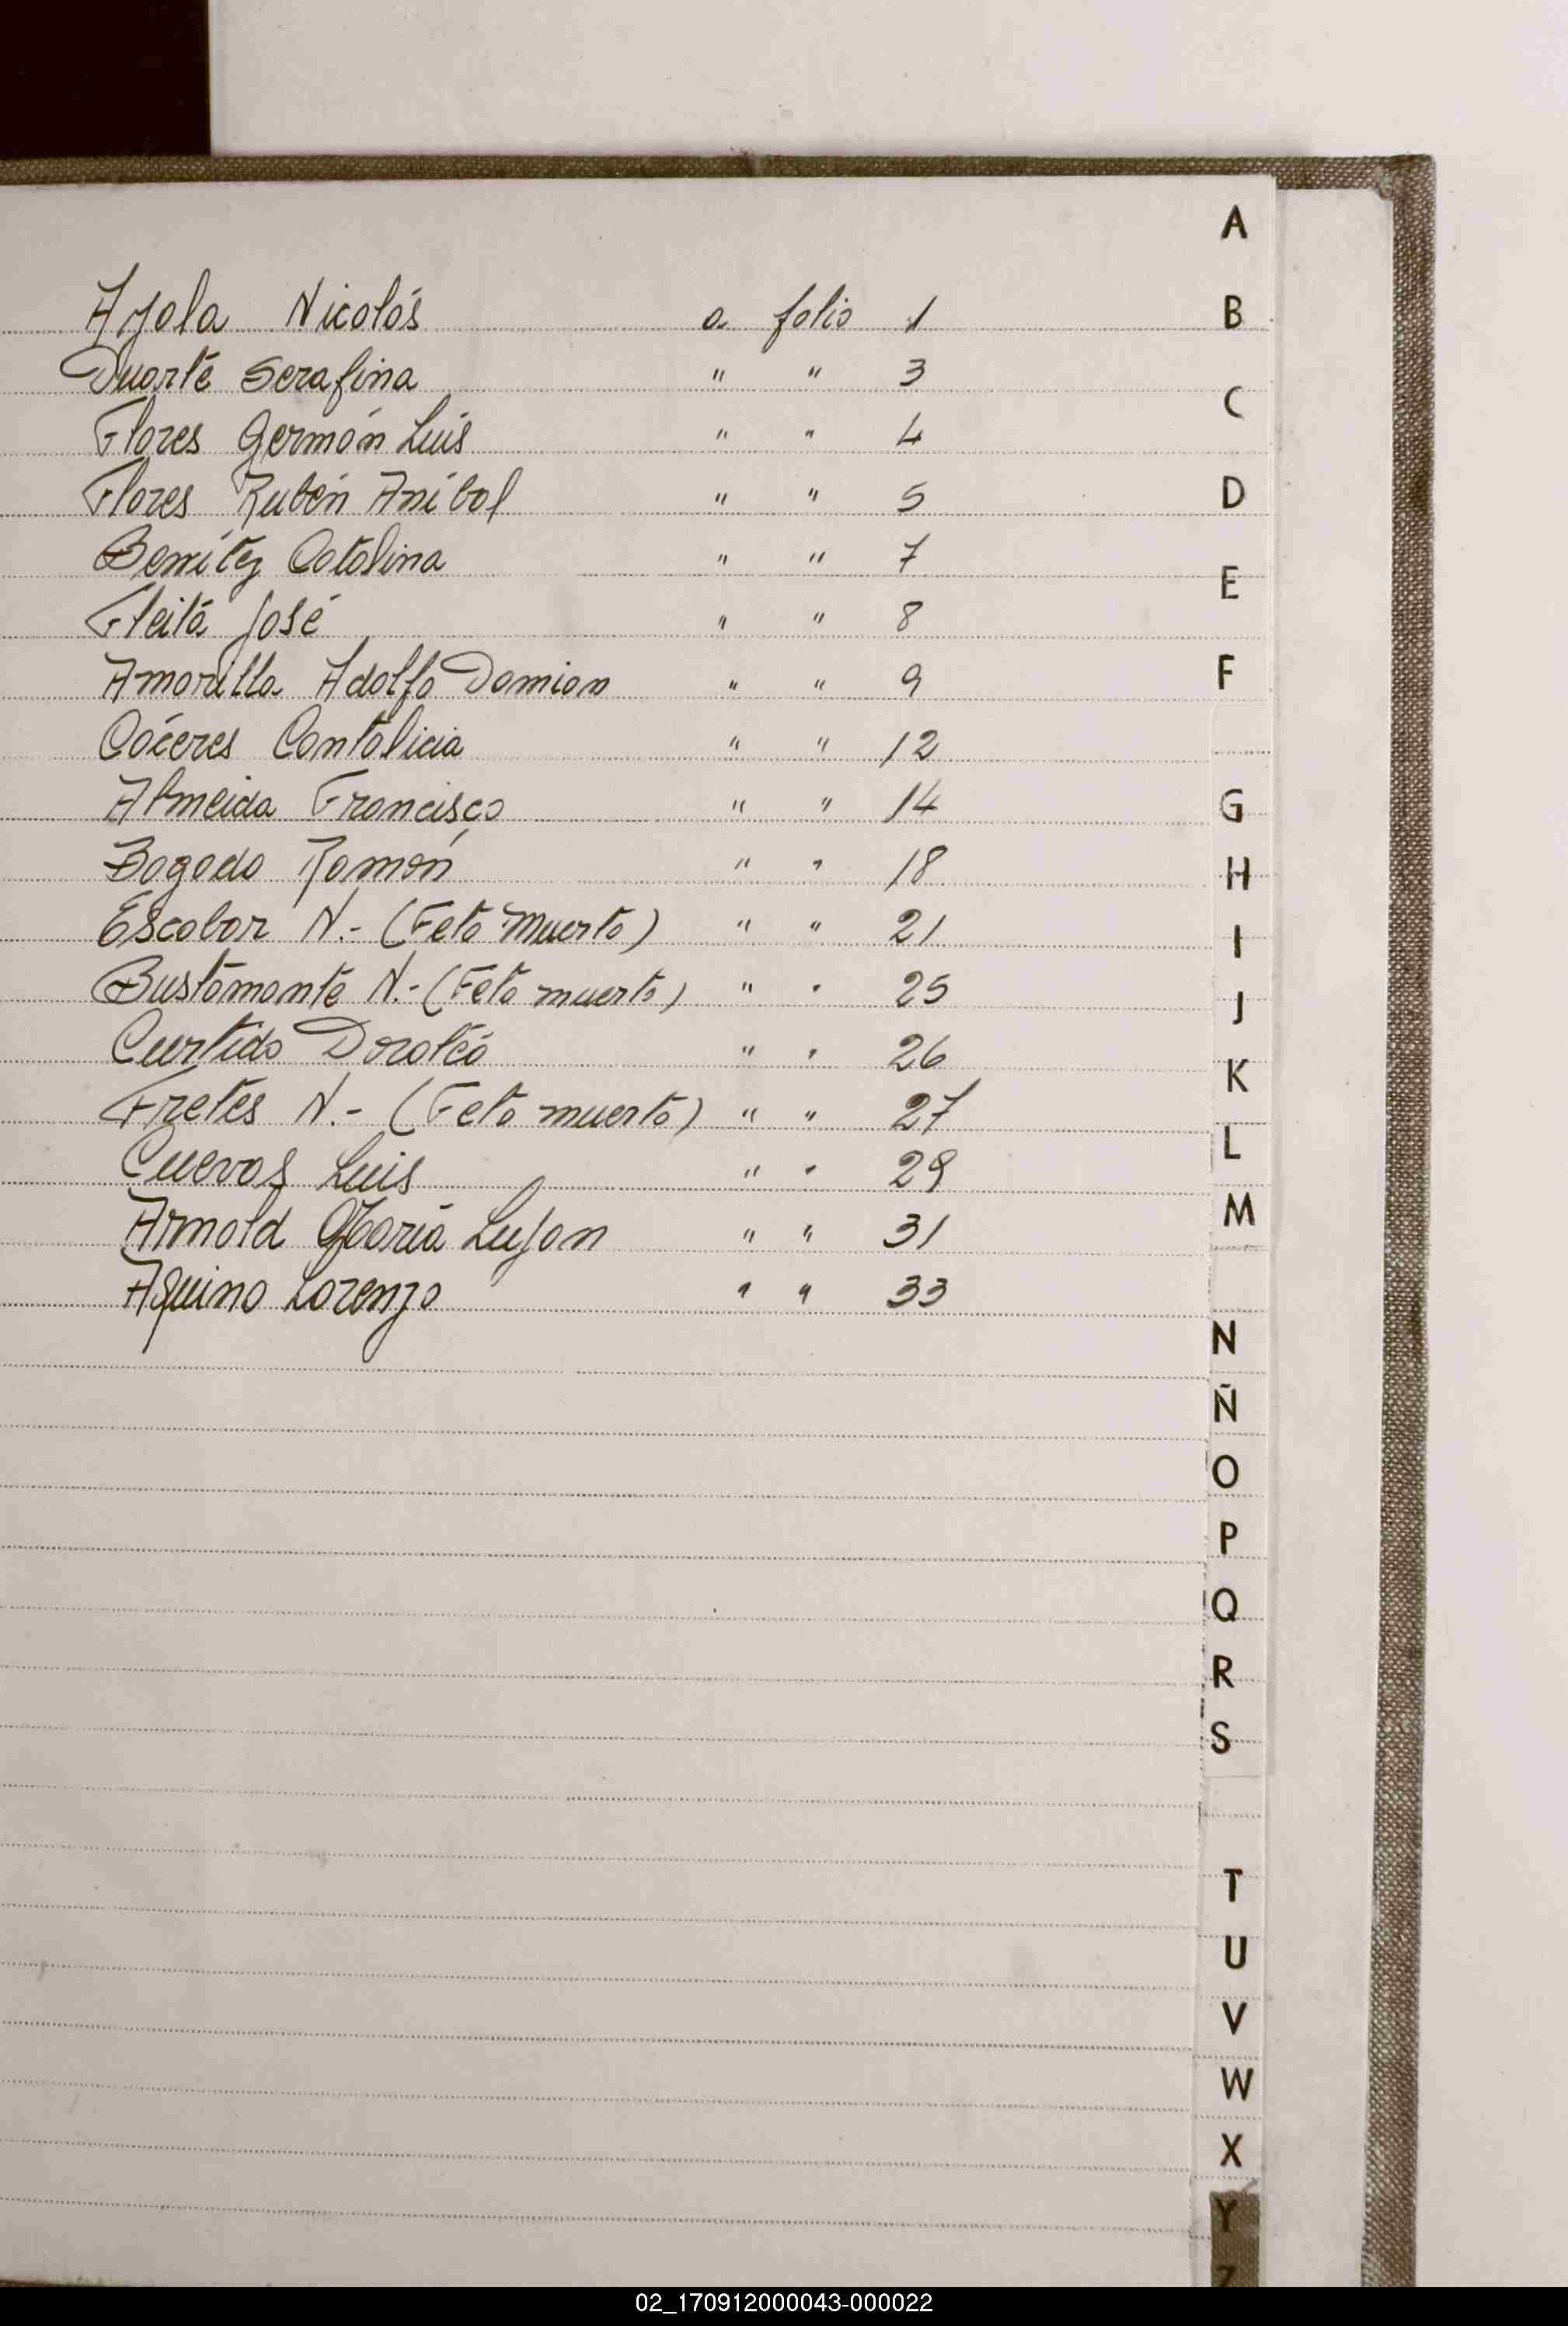 Ayala Nicolás a folio 1
Duarte Serafina " " 3
Flores Germán Luis " " 4
Flores Rubén Anibal " " 5
Benítez Catalina " " 7
Fleita José " " 8
Amarilla Adolfo Damian " " 9
Cáceres Cantalicia " " 12
Almeida Francisco " " 14
Bogado Ramón " " 18
Escobar N.- (Feto muerto) " " 21
Bustamante N.- (Feto muerto) " " 25
Curtido Doroteo " " 26
Fretes N.- (Feto muerto) " " 27
Cuevas Luis " " 29
Arnold María Lujan " " 31
Aquino Lorenzo " " 33
A
B
C
D
E
F
G
H
I
J
K
L
M
N
Ñ
O
P
Q
R
S
T
U
V
W
X
Y
Z
02_170912000043-000022